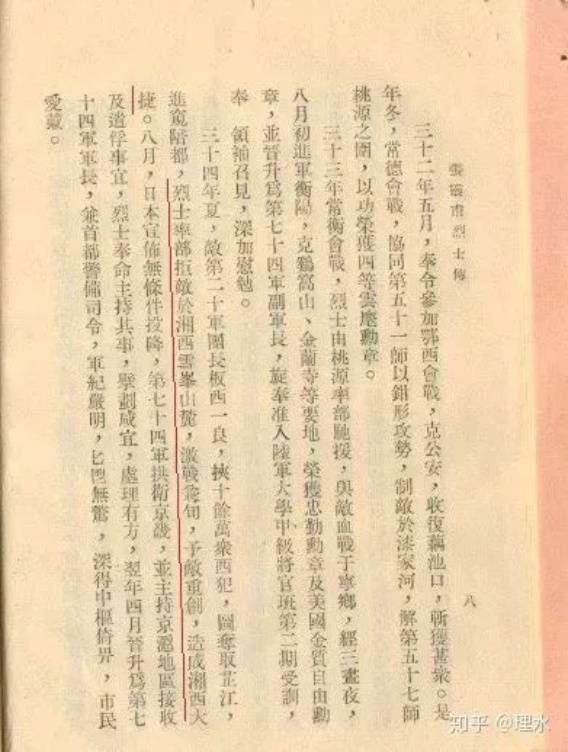 張靈甫烈士傳
八
三十二年五月，奉令參加鄂西會戰，克公安，收復藕池口，斬獲甚衆。是
年冬，常德會戰，協同第五十一師以鉗形攻勢，制敵於漆家河，解第五十七師
桃源之圍，以功榮獲四等雲麾勳章。
三十三年常衡會戰，烈士由桃源率部馳援，與敵血戰于寧鄉，經三晝夜，
八月初進軍衡陽，克鷄窩山、金蘭寺等要地，榮獲忠勤勳章及美國金質自由勳
章，並晉升爲第七十四軍副軍長，旋奉准入陸軍大學甲級將官班第二期受訓，
奉　領袖召見，深加慰勉。
三十四年夏，敵第二十軍團長板西一良，挾十餘萬衆西犯，圖奪取芷江，
進窺陪都，烈士率部拒敵於湘西雪峯山麓，激戰兼旬，予敵重創，造成湘西大
捷。八月，日本宣佈無條件投降，第七十四軍拱衛京畿，並主持京滬地區接收
及遣俘事宜，烈士奉命主持其事，擘劃咸宜，處理有方，翌年四月晉升爲第七
十四軍軍長，兼首都警備司令，軍紀嚴明，匕鬯無驚，深得中樞倚畀，市民
愛戴。
知乎 @理水